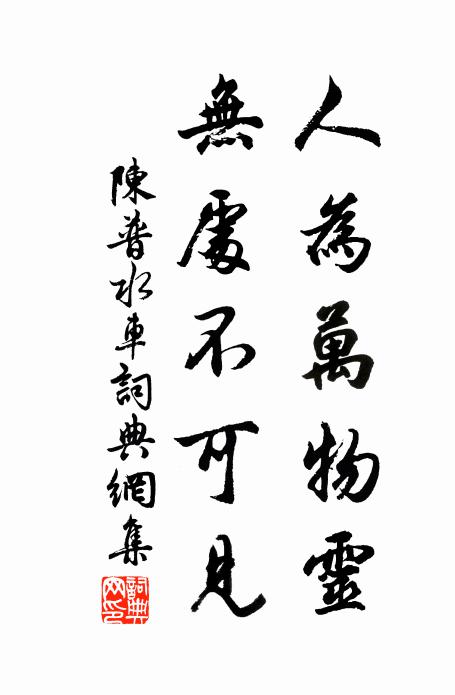 人為萬物靈
無處不可見
陳普水車詞典網集
詞典網印